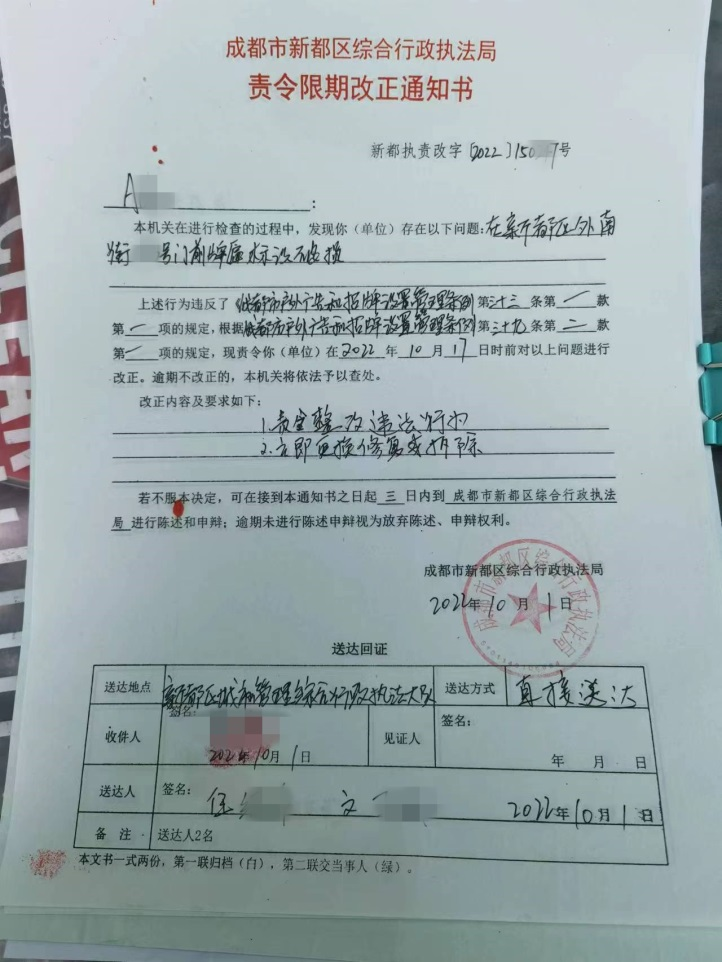 成都市新都区综合行政执法局
责令限期改正通知书
新都执责改字〔2022〕150 7号
A :
本机关在进行检查的过程中，发现你（单位）存在以下问题：在新都区外南
街 号门前牌匾标识破损
上述行为违反了《成都市户外广告和招牌设置管理条例》第三十三条第一款
第一项的规定，根据《成都市户外广告和招牌设置管理条例》第三十九条第二款
第一项的规定，现责令你（单位）在2022年10月17日时前对以上问题进行
改正。逾期不改正的，本机关将依法予以查处。
改正内容及要求如下：
1.责令整改违法行为
2.立即更换修复或拆除
若不服本决定，可在接到本通知书之日起 三 日内到 成都市新都区综合行政执法
局 进行陈述和申辩；逾期未进行陈述申辩视为放弃陈述、申辩权利。
成都市新都区综合行政执法局
2022年10月1日
成都市新都区综合行政执法局
送达回证
送达地点 新都区城市管理综合行政执法大队 送达方式 直接送达
收件人 签名： 2022年10月1日 见证人 签名： 年 月 日
送达人 签名： 伍 文 2022年10月1日
备 注 送达人2名
本文书一式两份，第一联归档（白），第二联交当事人（绿）。